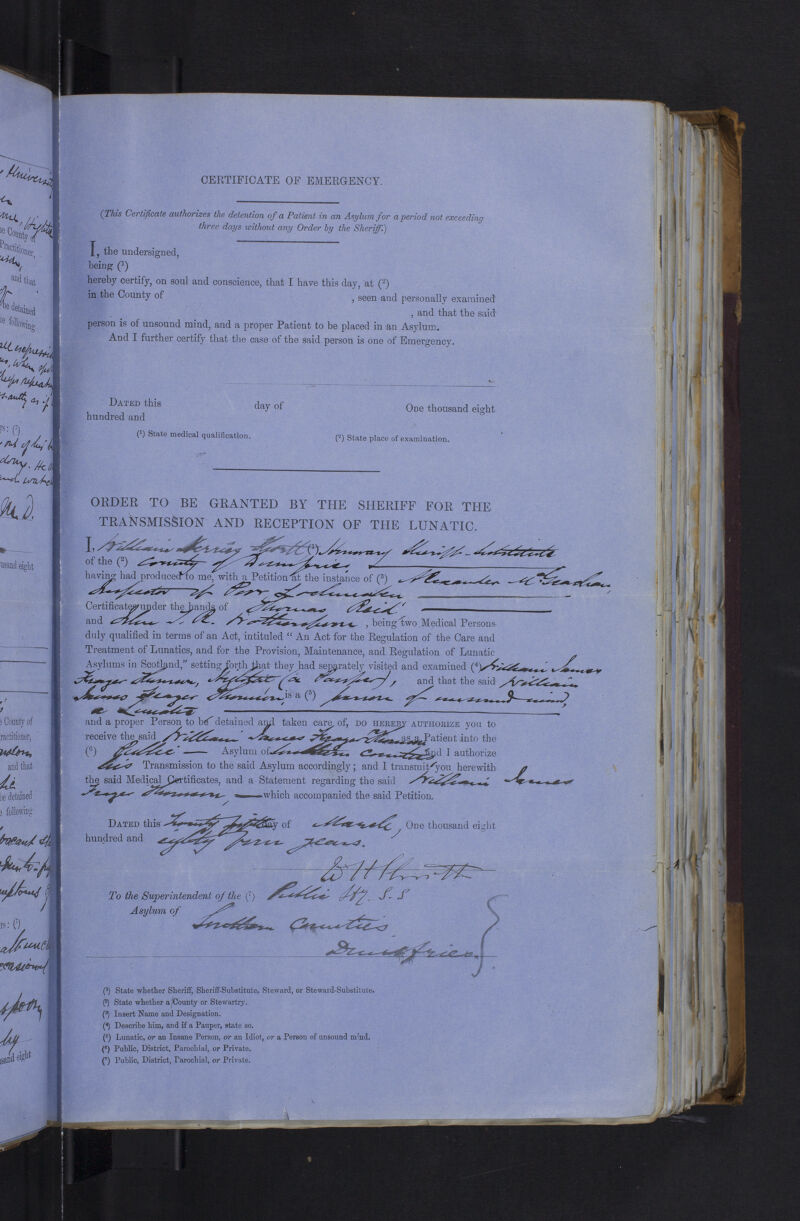 CERTIFICATE OF EMERGENCY.
(This Certificate authorizes the detention of a Patient in an Asylum for a period not exceeding
three days without any Order by the Sheriff.)
I, the undersigned,
being (¹)
hereby certify, on soul and conscience, that I have this day, at (²)
in the County of , seen and personally examined
, and that the said
person is of unsound mind, and a proper Patient to be placed in an Asylum.
And I further certify that the case of the said person is one of Emergency.
DATED this day of One thousand eight
hundred and
(¹) State medical qualification. (²) State place of examination.
ORDER TO BE GRANTED BY THE SHERIFF FOR THE
TRANSMISSION AND RECEPTION OF THE LUNATIC.
I, William (¹) Honorary Sheriff-Substitute
of the (²) County of Dumfries,
having had produced to me, with a Petition at the instance of (³) Alexander
Inspector of Poor
Certificates under the hands of Thomas Reid
and John , being two Medical Persons
duly qualified in terms of an Act, intituled “ An Act for the Regulation of the Care and
Treatment of Lunatics, and for the Provision, Maintenance, and Regulation of Lunatic
Asylums in Scotland,” setting forth that they had separately visited and examined (⁴) William James
Frazer Thomson, (a Pauper), and that the said William
James Frazer Thomson, is a (⁵) person of unsound mind,
a Lunatic
and a proper Person to be detained and taken care of, DO HEREBY AUTHORIZE you to
receive the said William James Frazer Thomson as a Patient into the
(⁶) Public Asylum of Southern Counties and I authorize
his Transmission to the said Asylum accordingly; and I transmit you herewith
the said Medical Certificates, and a Statement regarding the said William James
Frazer Thomson, which accompanied the said Petition.
DATED this Twenty fifth day of March, One thousand eight
hundred and eighty four years.
To the Superintendent of the (⁷) Public
Asylum of
Southern Counties
Dumfries.
(¹) State whether Sheriff, Sheriff-Substitute, Steward, or Steward-Substitute.
(²) State whether a County or Stewartry.
(³) Insert Name and Designation.
(⁴) Describe him, and if a Pauper, state so.
(⁵) Lunatic, or an Insane Person, or an Idiot, or a Person of unsound mind.
(⁶) Public, District, Parochial, or Private.
(⁷) Public, District, Parochial, or Private.